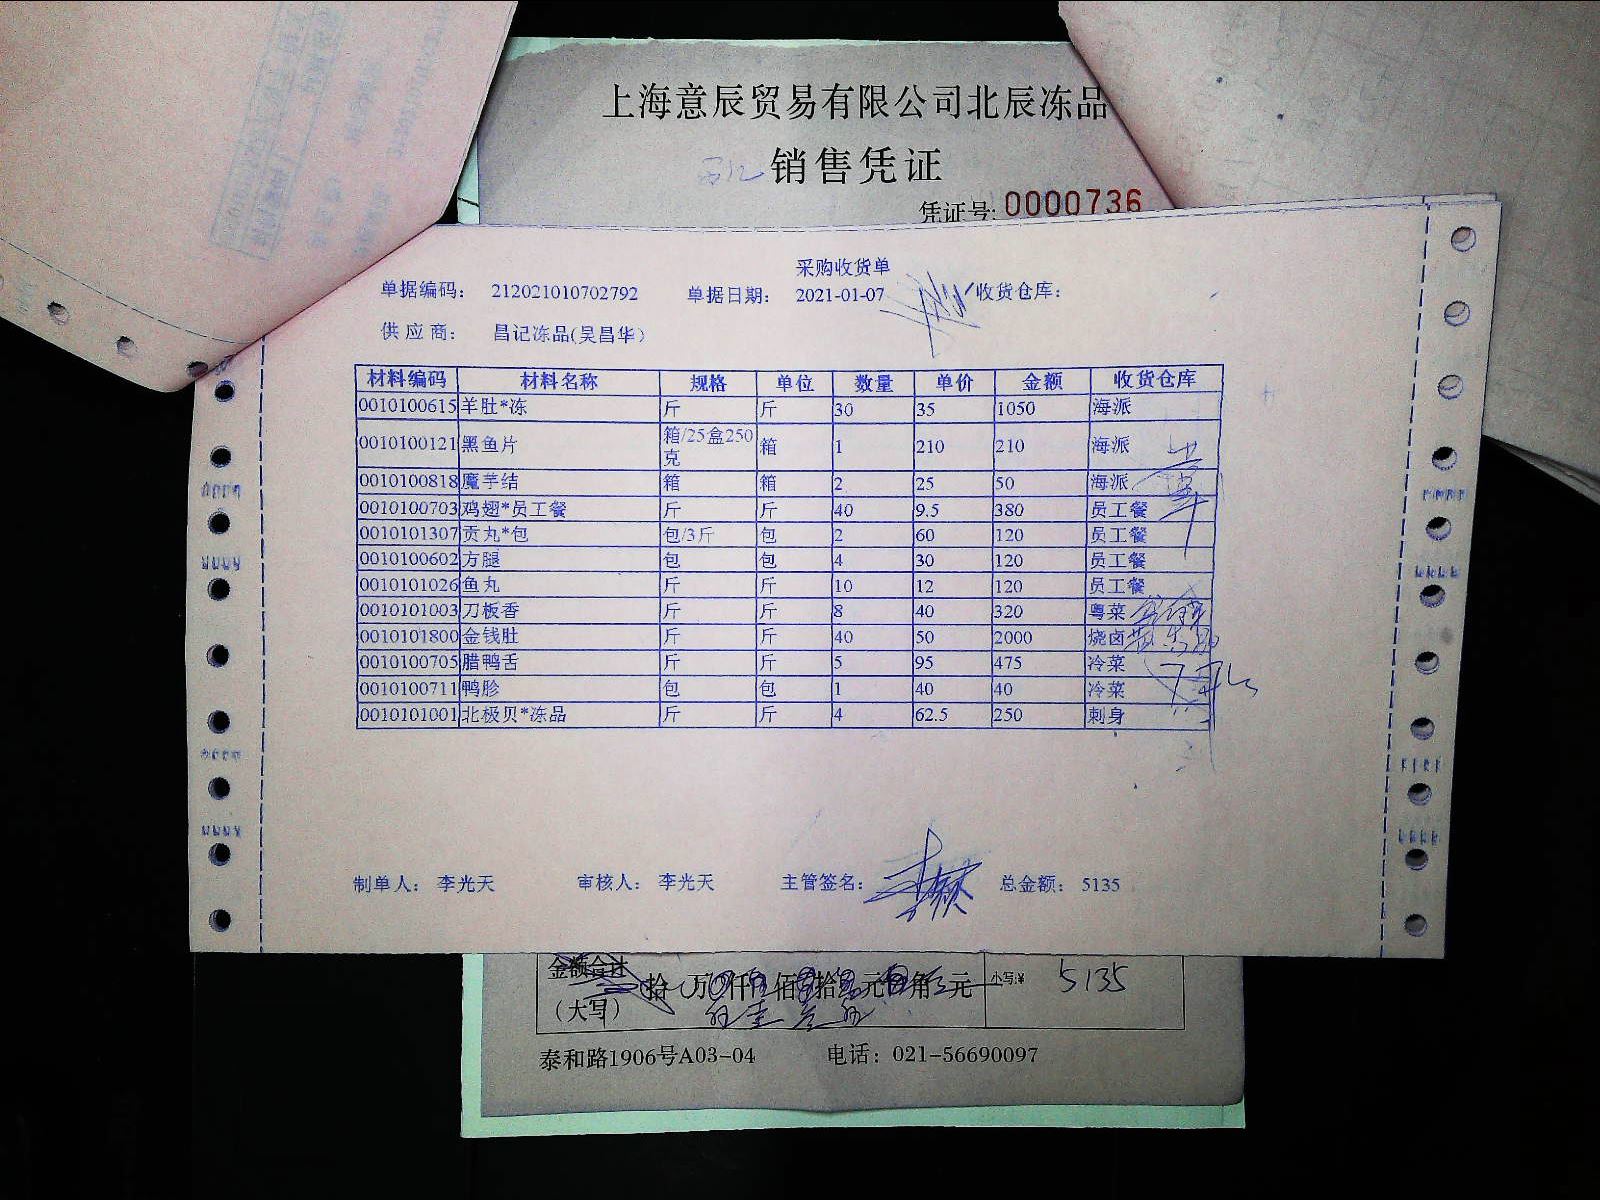 上海意辰贸易有限公司北辰冻品
销售凭证
凭证号: 0000736
采购收货单
单据编码: 212021010702792 单据日期: 2021-01-07 收货仓库:
供应商: 昌记冻品(吴昌华)
材料编码 材料名称 规格 单位 数量 单价 金额 收货仓库
0010100615 羊肚*冻 斤 斤 30 35 1050 海派
0010100121 黑鱼片 箱/25盒250克 箱 1 210 210 海派
0010100818 魔芋结 箱 箱 2 25 50 海派
0010100703 鸡翅*员工餐 斤 斤 40 9.5 380 员工餐
0010101307 贡丸*包 包/3斤 包 2 60 120 员工餐
0010100602 方腿 包 包 4 30 120 员工餐
0010101026 鱼丸 斤 斤 10 12 120 员工餐
0010101003 刀板香 斤 斤 8 40 320 粤菜
0010101800 金钱肚 斤 斤 40 50 2000 烧卤
0010100705 腊鸭舌 斤 斤 5 95 475 冷菜
0010100711 鸭胗 包 包 1 40 40 冷菜
0010101001 北极贝*冻品 斤 斤 4 62.5 250 刺身
制单人: 李光天 审核人: 李光天 主管签名: 总金额: 5135
金额合计 拾 万 仟 佰 拾 元 角 元 小写:¥ 5135
(大写)
泰和路1906号A03-04 电话: 021-56690097